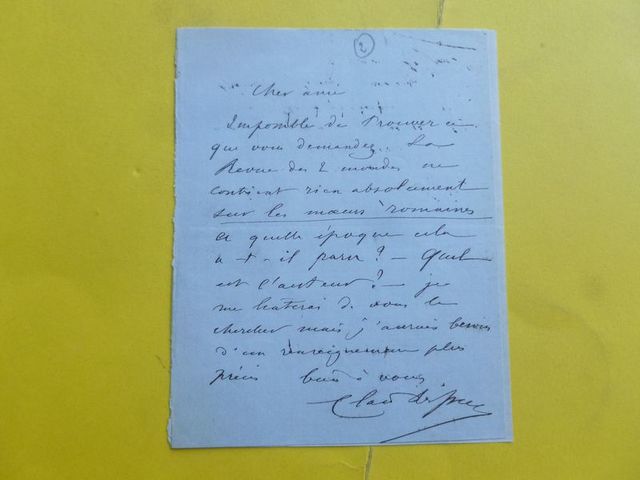 2
Cher ami
Impossible de trouver ce
que vous demandez. La
Revue des 2 mondes ne
contient rien absolument
sur les mœurs romaines
a quelle époque cela
a-t-il paru? - Quel
est l'auteur? - je
me haterai de vous le
chercher mais j'aurais besoin
d'un renseignement plus
précis bien à vous